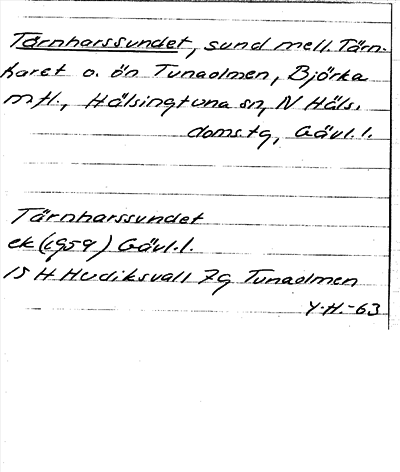 Tärnharssundet, sund mell. Tärn-
haret o. ön Tunaolmen, Björka
m fl., Hälsingtuna sn, N Häls.
doms.tg, Gävl.l.
Tärnharssundet
ek (1959) Gävl.l.
15 H Hudiksvall 7g Tunaolmen
Y.H.-63